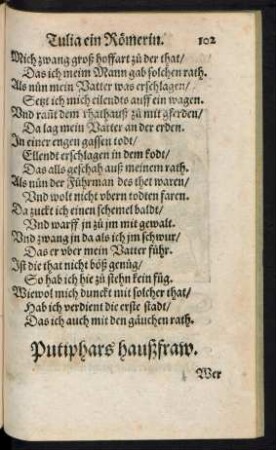 Tulia ein Römerin. 102
Mich zwang groß hoffart zů der that/
Das ich meim Mann gab solchen rath.
Als nůn mein Vatter was erschlagen/
Setzt ich mich eilendts auff ein wagen.
Vnd rañt dem rhathauß zů mit pferden/
Da lag mein Vatter an der erden.
In einer engen gassen todt/
Ellendt erschlagen in dem kodt/
Das alls geschah auß meinem rath.
Als nůn der Führman des thet waren/
Vnd wolt nicht vbern todten faren.
Da zuckt ich einen schemel baldt/
Vnd warff jn zů jm mit gewalt.
Vnd zwang jn da als ich jm schwur/
Das er vber mein Vatter führ.
Ist die that nicht böß genůg/
So hab ich hie zů stehn kein fůg.
Wiewol mich dunckt mit solcher that/
Hab ich verdient die erste stadt/
Das ich auch mit den gäuchen rath.
Putiphars haußfraw.
Wer